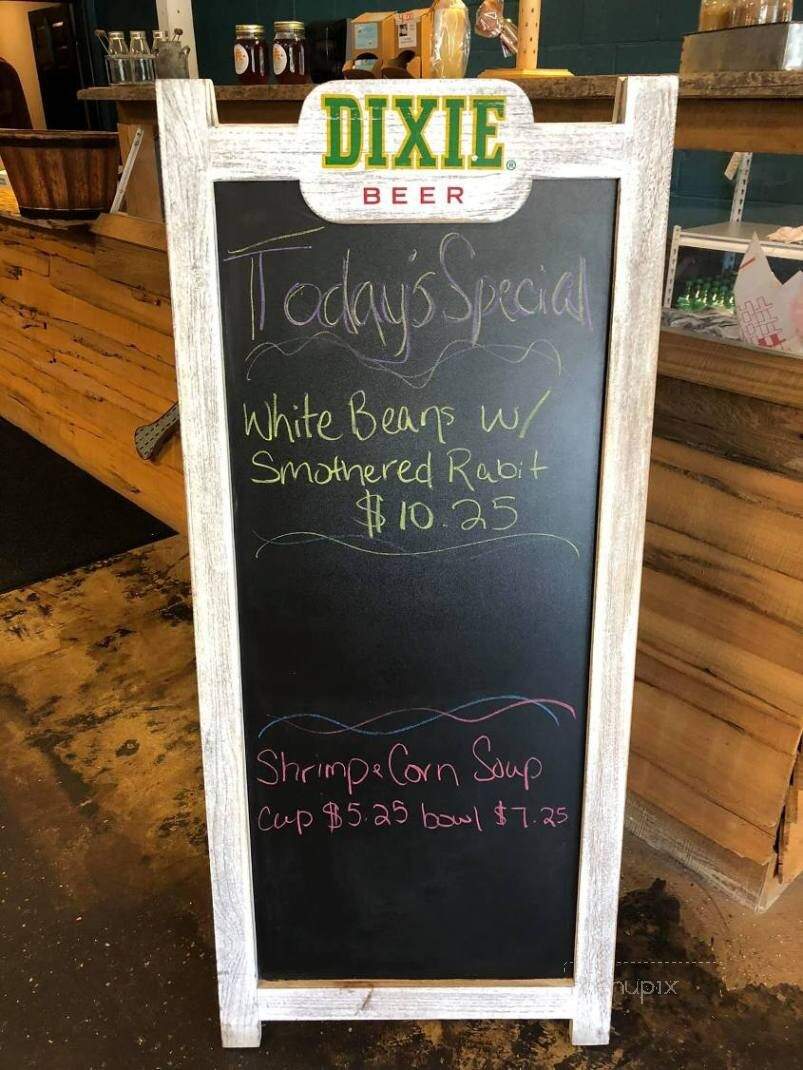 DIXIE®
BEER
Today's Special
White Beans w/
Smothered Rabit
$10.25
Shrimp & Corn Soup
Cup $5.25 bowl $7.25